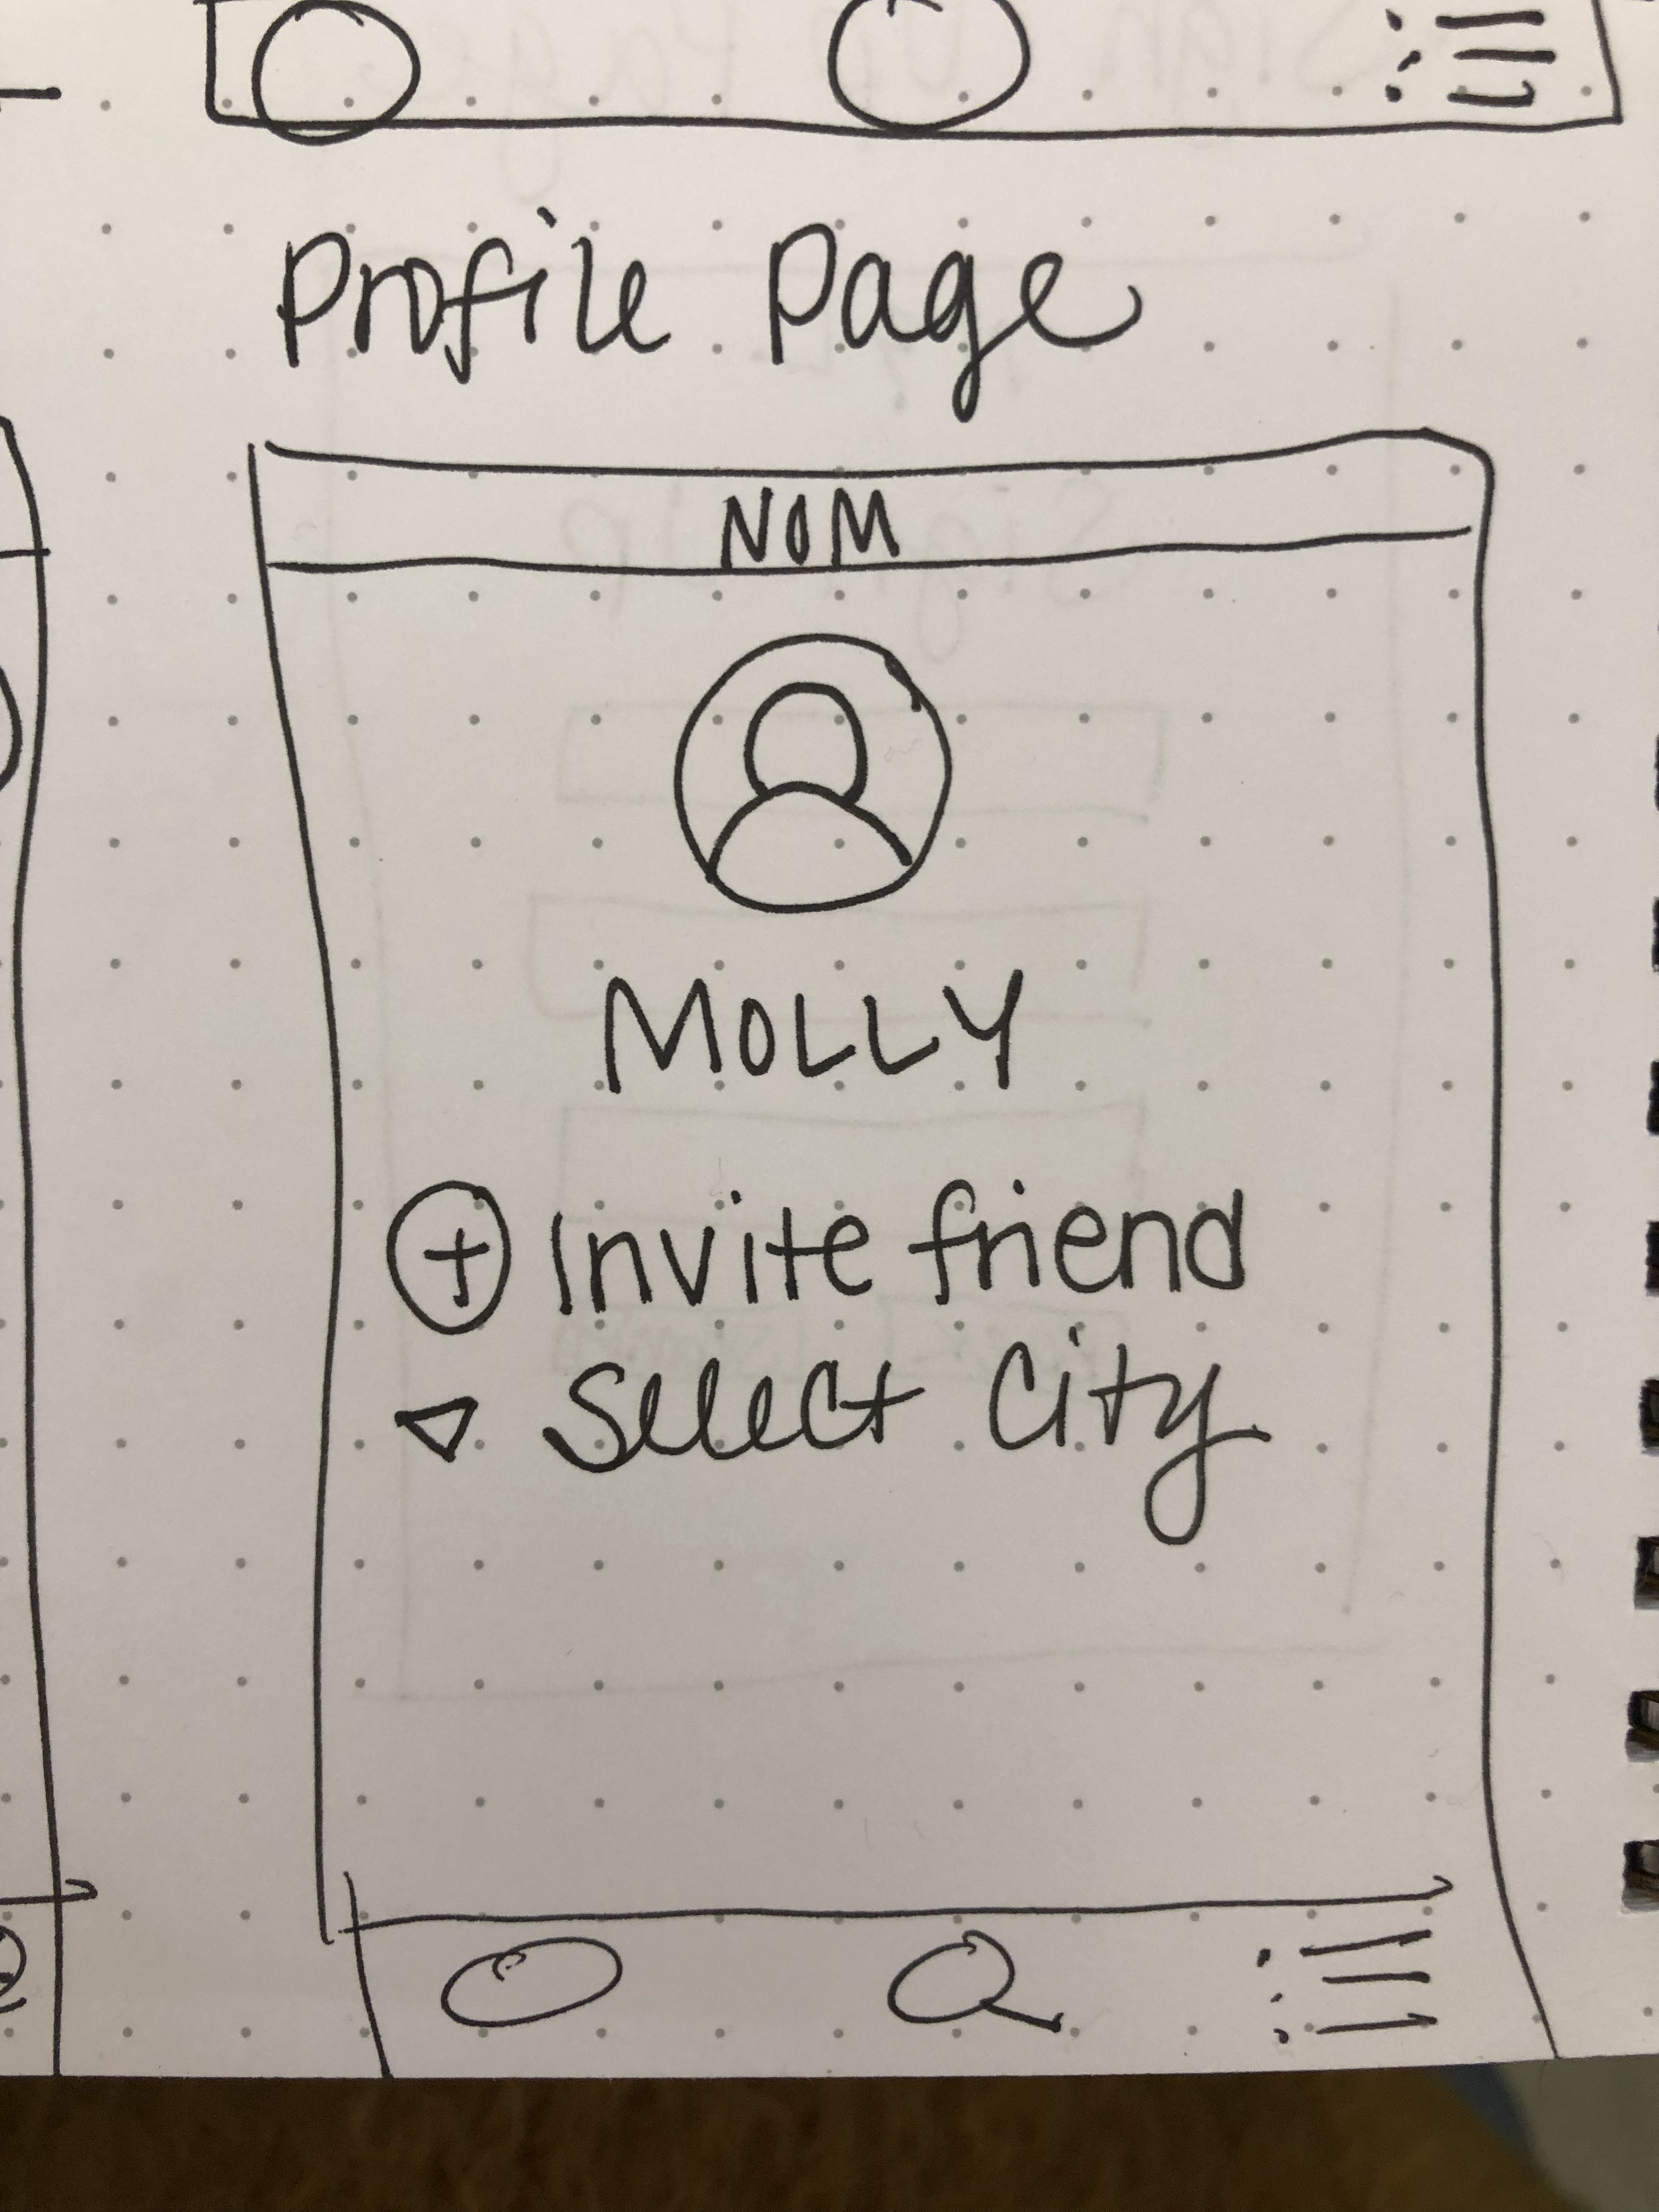 Profile Page
NOM
MOLLY
+ Invite friend
Select City